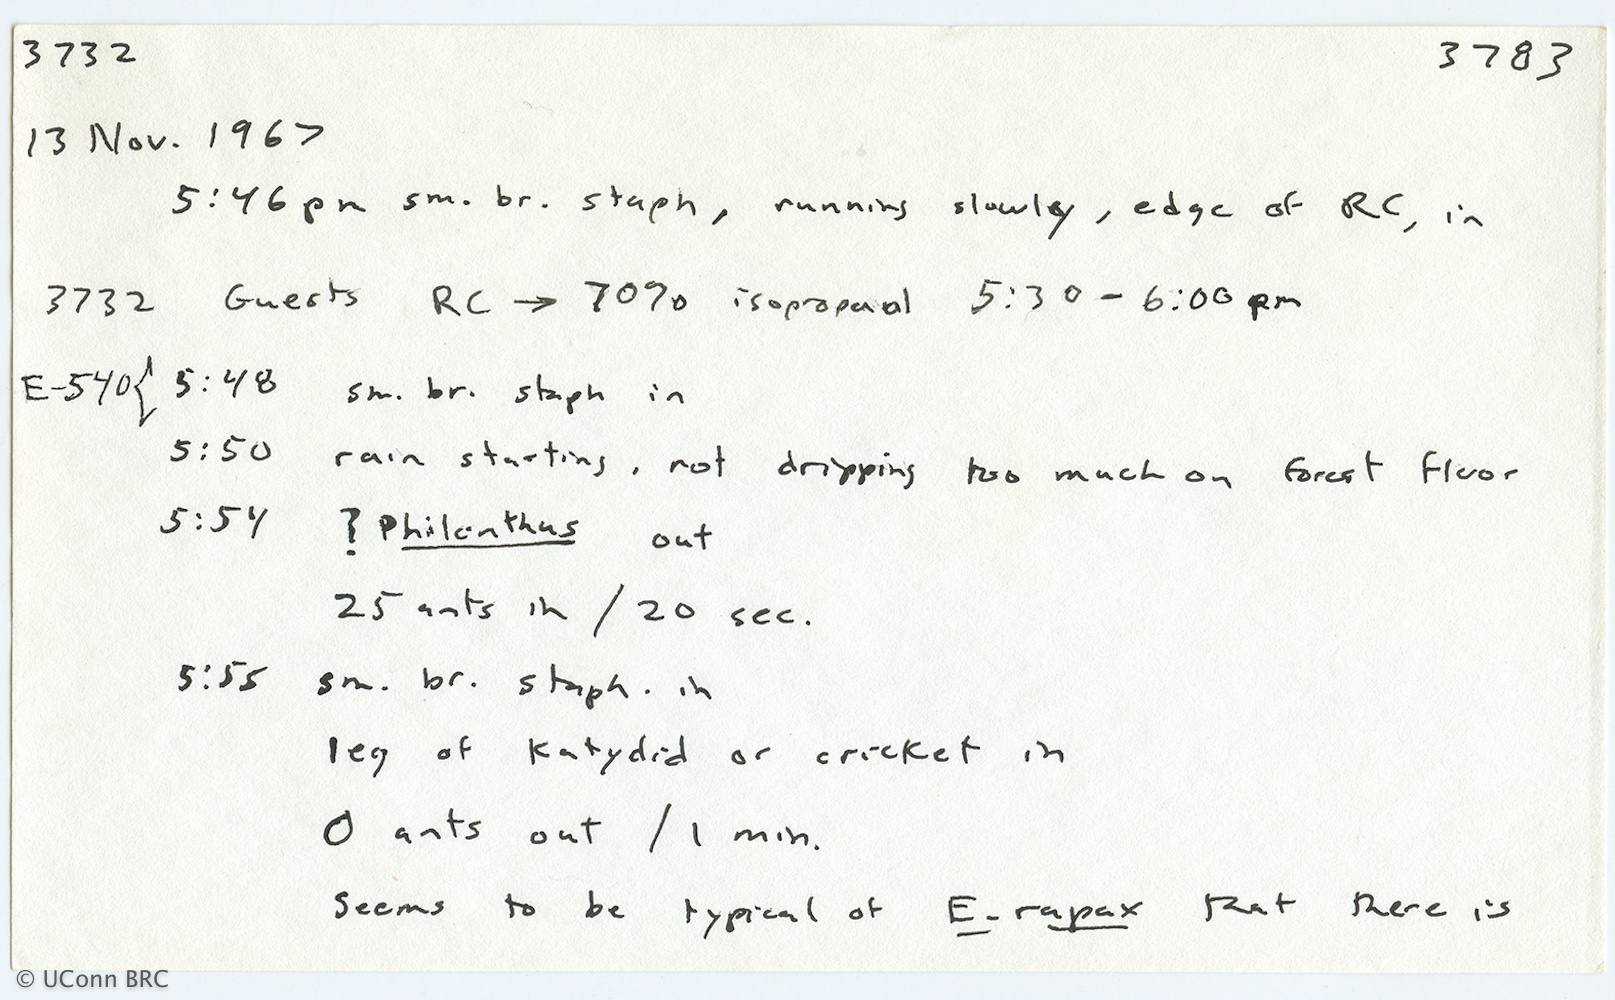 3732 3783
13 Nov. 1967
5:46 pm sm. br. staph, running slowly, edge of RC, in
3732 Guests RC → 70% isopropanol 5:30 - 6:00 pm
E-540{ 5:48 sm. br. staph in
5:50 rain starting, not dripping too much on forest floor
5:54 ? Philanthus out
25 ants in / 20 sec.
5:55 sm. br. staph. in
leg of katydid or cricket in
0 ants out / 1 min.
Seems to be typical of E. rapax that there is
© UConn BRC